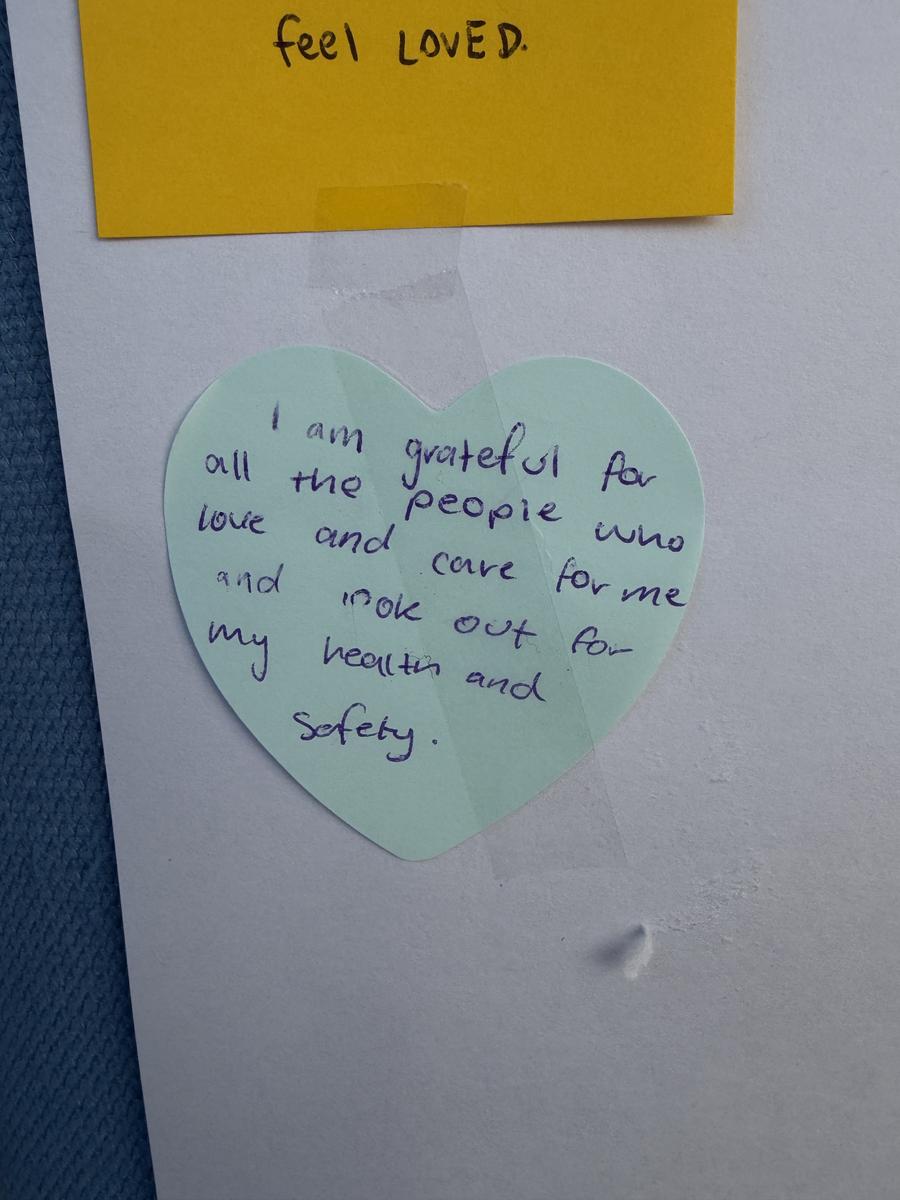 feel LOVED.
I am grateful for
all the people who
love and care for me
and look out for
my health and
safety.